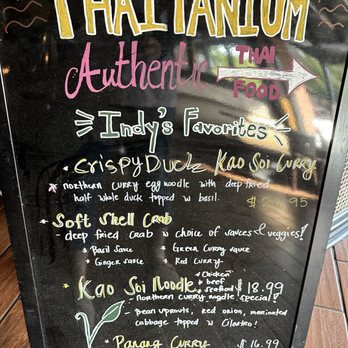 THAITANIUM
Authentic THAI FOOD
Indy's Favorites
* Crispy Duck Kao Soi Curry
* northern curry egg noodle with deep fried
half whole duck topped w basil.
* Soft Shell Crab
- deep fried crab w choice of sauces & veggies!
* Basil Sauce * Green Curry sauce
* Ginger sauce * Red Curry
* Chicken
* Kao Soi Noodle * beef
* seafood $18.99
- northern curry noodle special!
- bean sprouts, red onion, marinated
cabbage topped w cilantro!
* Panang Curry $16.99